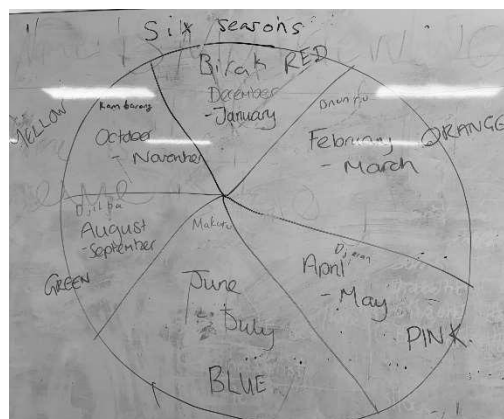 Six seasons
Birak RED
December
- January
Bunuru
February
- March
ORANGE
Djeran
April
- May
PINK
Makuru
June
- July
BLUE
Djilba
August
- September
GREEN
Kambarang
October
- November
YELLOW